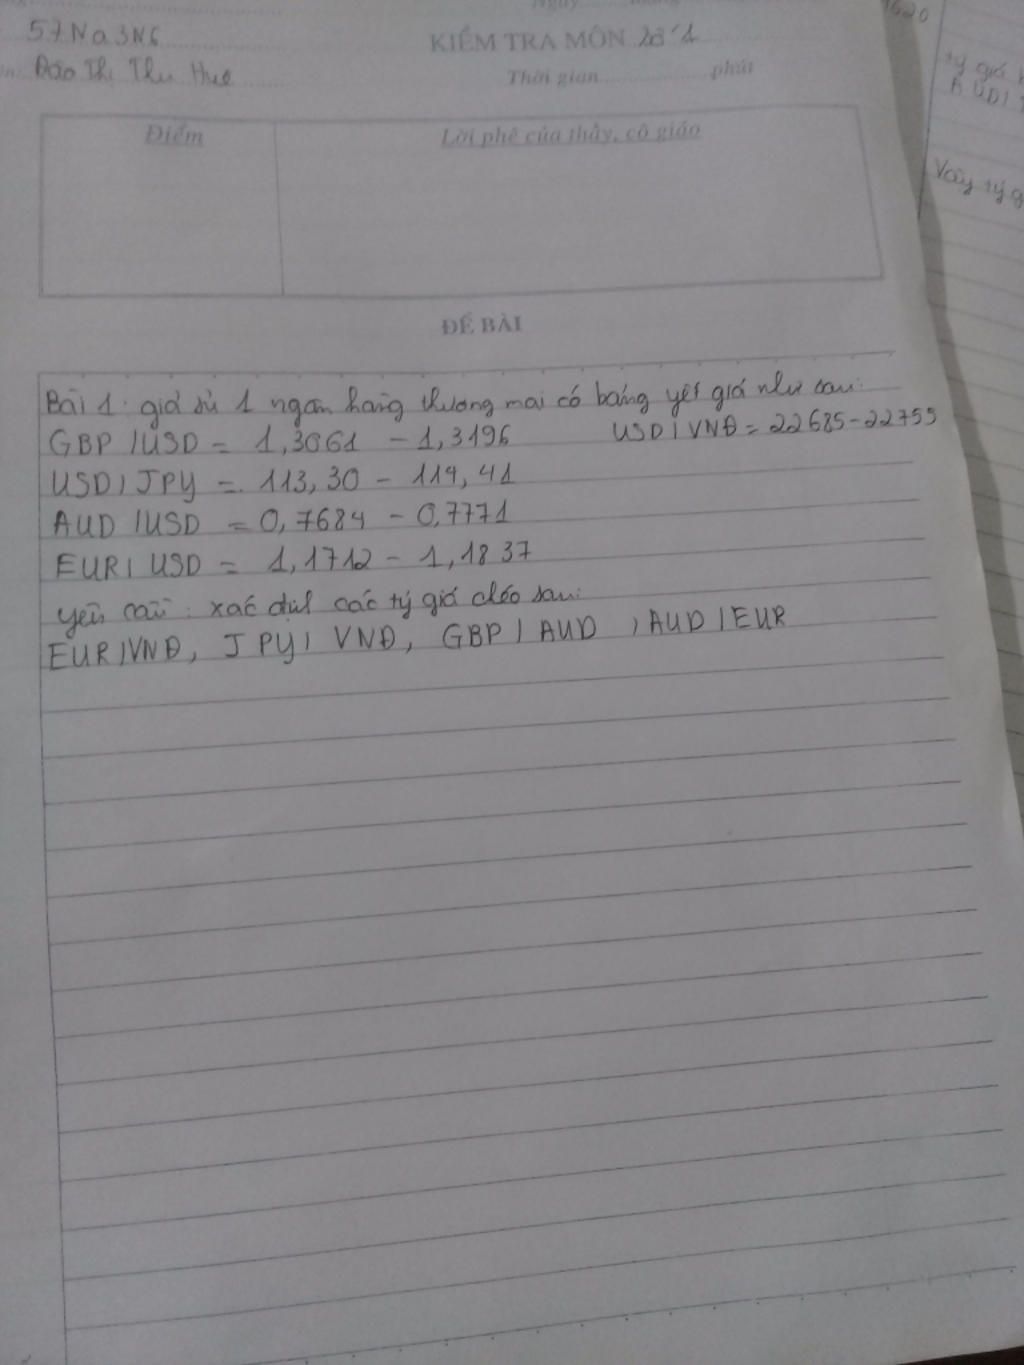 57Na3N6
Đào Thị Thu Huê
KIỂM TRA MÔN
Thời gian..................phút
Điểm
Lời phê của thầy, cô giáo
ĐỀ BÀI
Bài 1: giả sử 1 ngân hàng thương mại có bảng yết giá như sau:
GBP/USD = 1,3061 - 1,3196 USD/VNĐ = 22685-22755
USD/JPY = 113,30 - 114,41
AUD/USD = 0,7684 - 0,7771
EUR/USD = 1,1712 - 1,1837
yêu cầu: xác định các tỷ giá chéo sau:
EUR/VNĐ, JPY/VNĐ, GBP/AUD, AUD/EUR
tỷ giá
AUD/
Vậy tỷ g